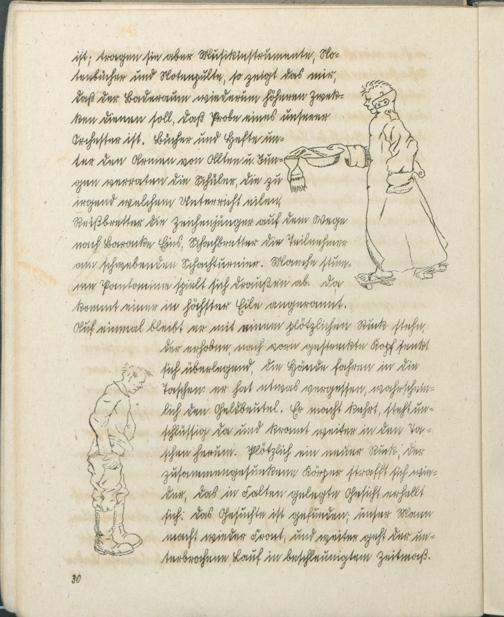 ist; tragen sie aber Musikinstrumente, No-
tenbücher und Notenpulte, so zeigt das mir,
daß der Baderaum wiederum höheren Zwek-
ken dienen soll, daß Probe eines unserer
Orchester ist. Bücher und Hefte un-
ter den Armen von Alten u. Jun-
gen verraten die Schüler, die zu
irgend welchem Unterricht eilen,
Reißbretter die Zeichenjünger auf dem Wege
nach Baracke Eins, Schachbretter die Teilnehmer
am schwebenden Schachturnier. Manche stum-
me Pantomime spielt sich draußen ab. Da
kommt einer in höchster Eile angerannt.
Auf einmal bleibt er mit einem plötzlichen Ruck stehn,
der erhobne, nach vorn gestreckte Kopf senkt
sich überlegend. Die Hände fahren in die
Taschen: er hat etwas vergessen, wahrschein-
lich den Geldbeutel. Er macht kehrt, steht un-
schlüssig da und kramt weiter in den Ta-
schen herum. Plötzlich ein neuer Ruck, der
zusammengesunkene Körper strafft sich wie-
der, das in Falten gelegte Gesicht erhellt
sich: das Gesuchte ist gefunden; unser Mann
macht wieder Front, und weiter geht der un-
terbrochene Lauf in beschleunigtem Zeitmaß.
30